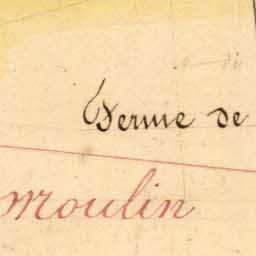 Ferme de
Moulin